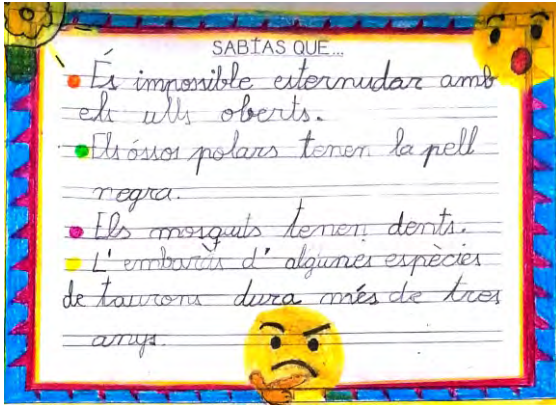 SABÍAS QUE...
És impossible esternudar amb
els ulls oberts.
Els óssos polars tenen la pell
negra.
Els mosquits tenen dents.
L'embaràs d'algunes espècies
de taurons dura més de tres
anys.